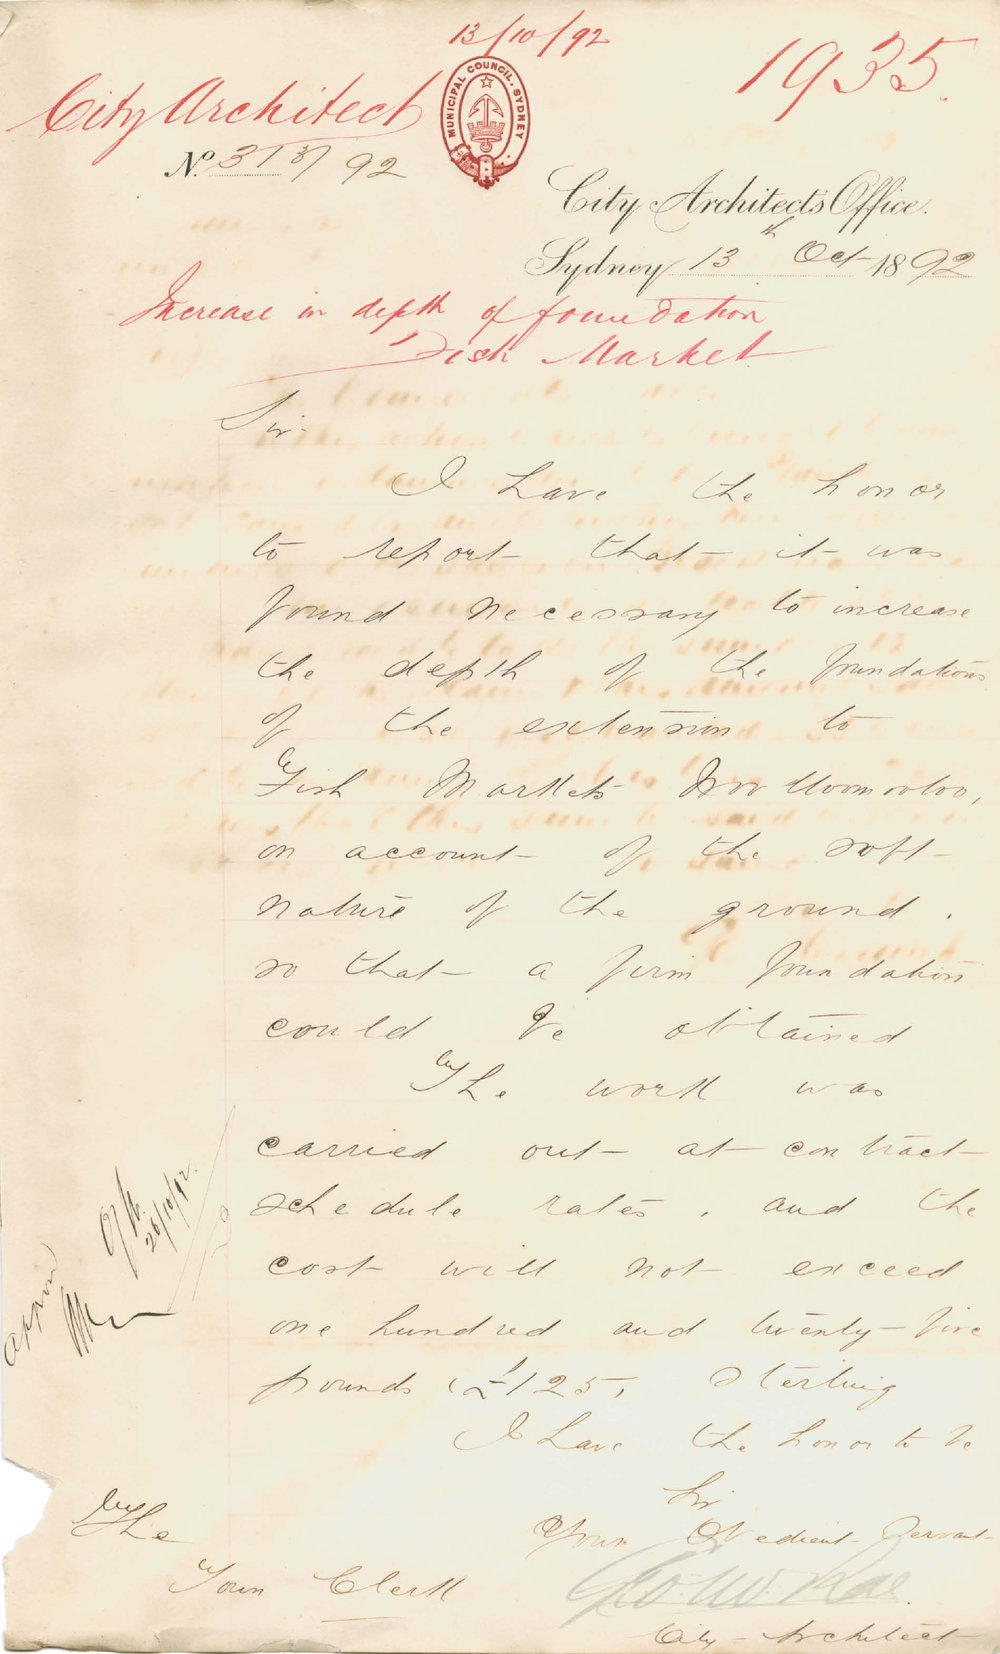 13/10/92
1935.
City Architect
MUNICIPAL COUNCIL. SYDNEY
No. 313/92
City Architect's Office.
Sydney 13th Oct 1892
Increase in depth of foundation
Fish Market
Sir
I have the honor
to report that it was
found necessary to increase
the depth of the foundations
of the extension to
Fish Markets Woolloomooloo,
on account of the soft
nature of the ground.
so that a firm foundation
could be obtained
The work was
carried out at contract
schedule rates, and the
cost will not exceed
one hundred and twenty-five
pounds (£125) Sterling
I have the honor to be
Sir
Your Obedient Servant
Geo McRae
City Architect
The
Town Clerk
26/10/92.